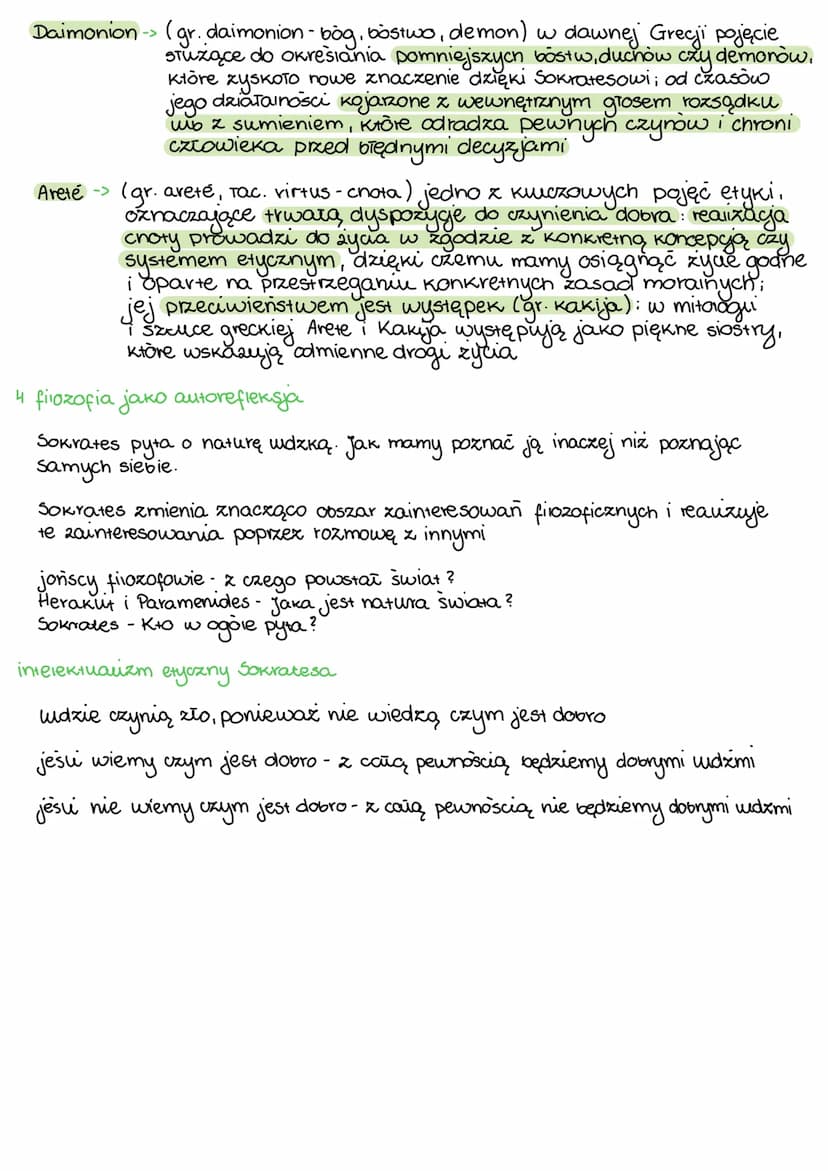 Daimonion -> (gr. daimonion - bóg, bóstwo, demon) w dawnej Grecji pojęcie
służące do określania pomniejszych bóstw, duchów czy demonów,
które zyskało nowe znaczenie dzięki Sokratesowi; od czasów
jego działalności kojarzone z wewnętrznym głosem rozsądku
lub z sumieniem, które odradza pewnych czynów i chroni
człowieka przed błędnymi decyzjami
Areté -> (gr. areté, łac. virtus - cnota) jedno z kluczowych pojęć etyki,
oznaczające trwałą dyspozycję do czynienia dobra: realizacja
cnoty prowadzi do życia w zgodzie z konkretną koncepcją czy
systemem etycznym, dzięki czemu mamy osiągnąć życie godne
i oparte na przestrzeganiu konkretnych zasad moralnych;
jej przeciwieństwem jest występek (gr. kakija): w mitologii
i sztuce greckiej Arete i Kakija występują jako piękne siostry,
które wskazują odmienne drogi życia
4 filozofia jako autorefleksja
Sokrates pyta o naturę ludzką. Jak mamy poznać ją inaczej niż poznając
samych siebie.
Sokrates zmienia znacząco obszar zainteresowań filozoficznych i realizuje
te zainteresowania poprzez rozmowę z innymi
jońscy filozofowie - z czego powstał świat?
Heraklit i Paramenides - Jaka jest natura świata?
Sokrates - Kto w ogóle pyta?
intelektualizm etyczny Sokratesa
ludzie czynią zło, ponieważ nie wiedzą czym jest dobro
jeśli wiemy czym jest dobro - z całą pewnością będziemy dobrymi ludźmi
jeśli nie wiemy czym jest dobro - z całą pewnością nie będziemy dobrymi ludźmi